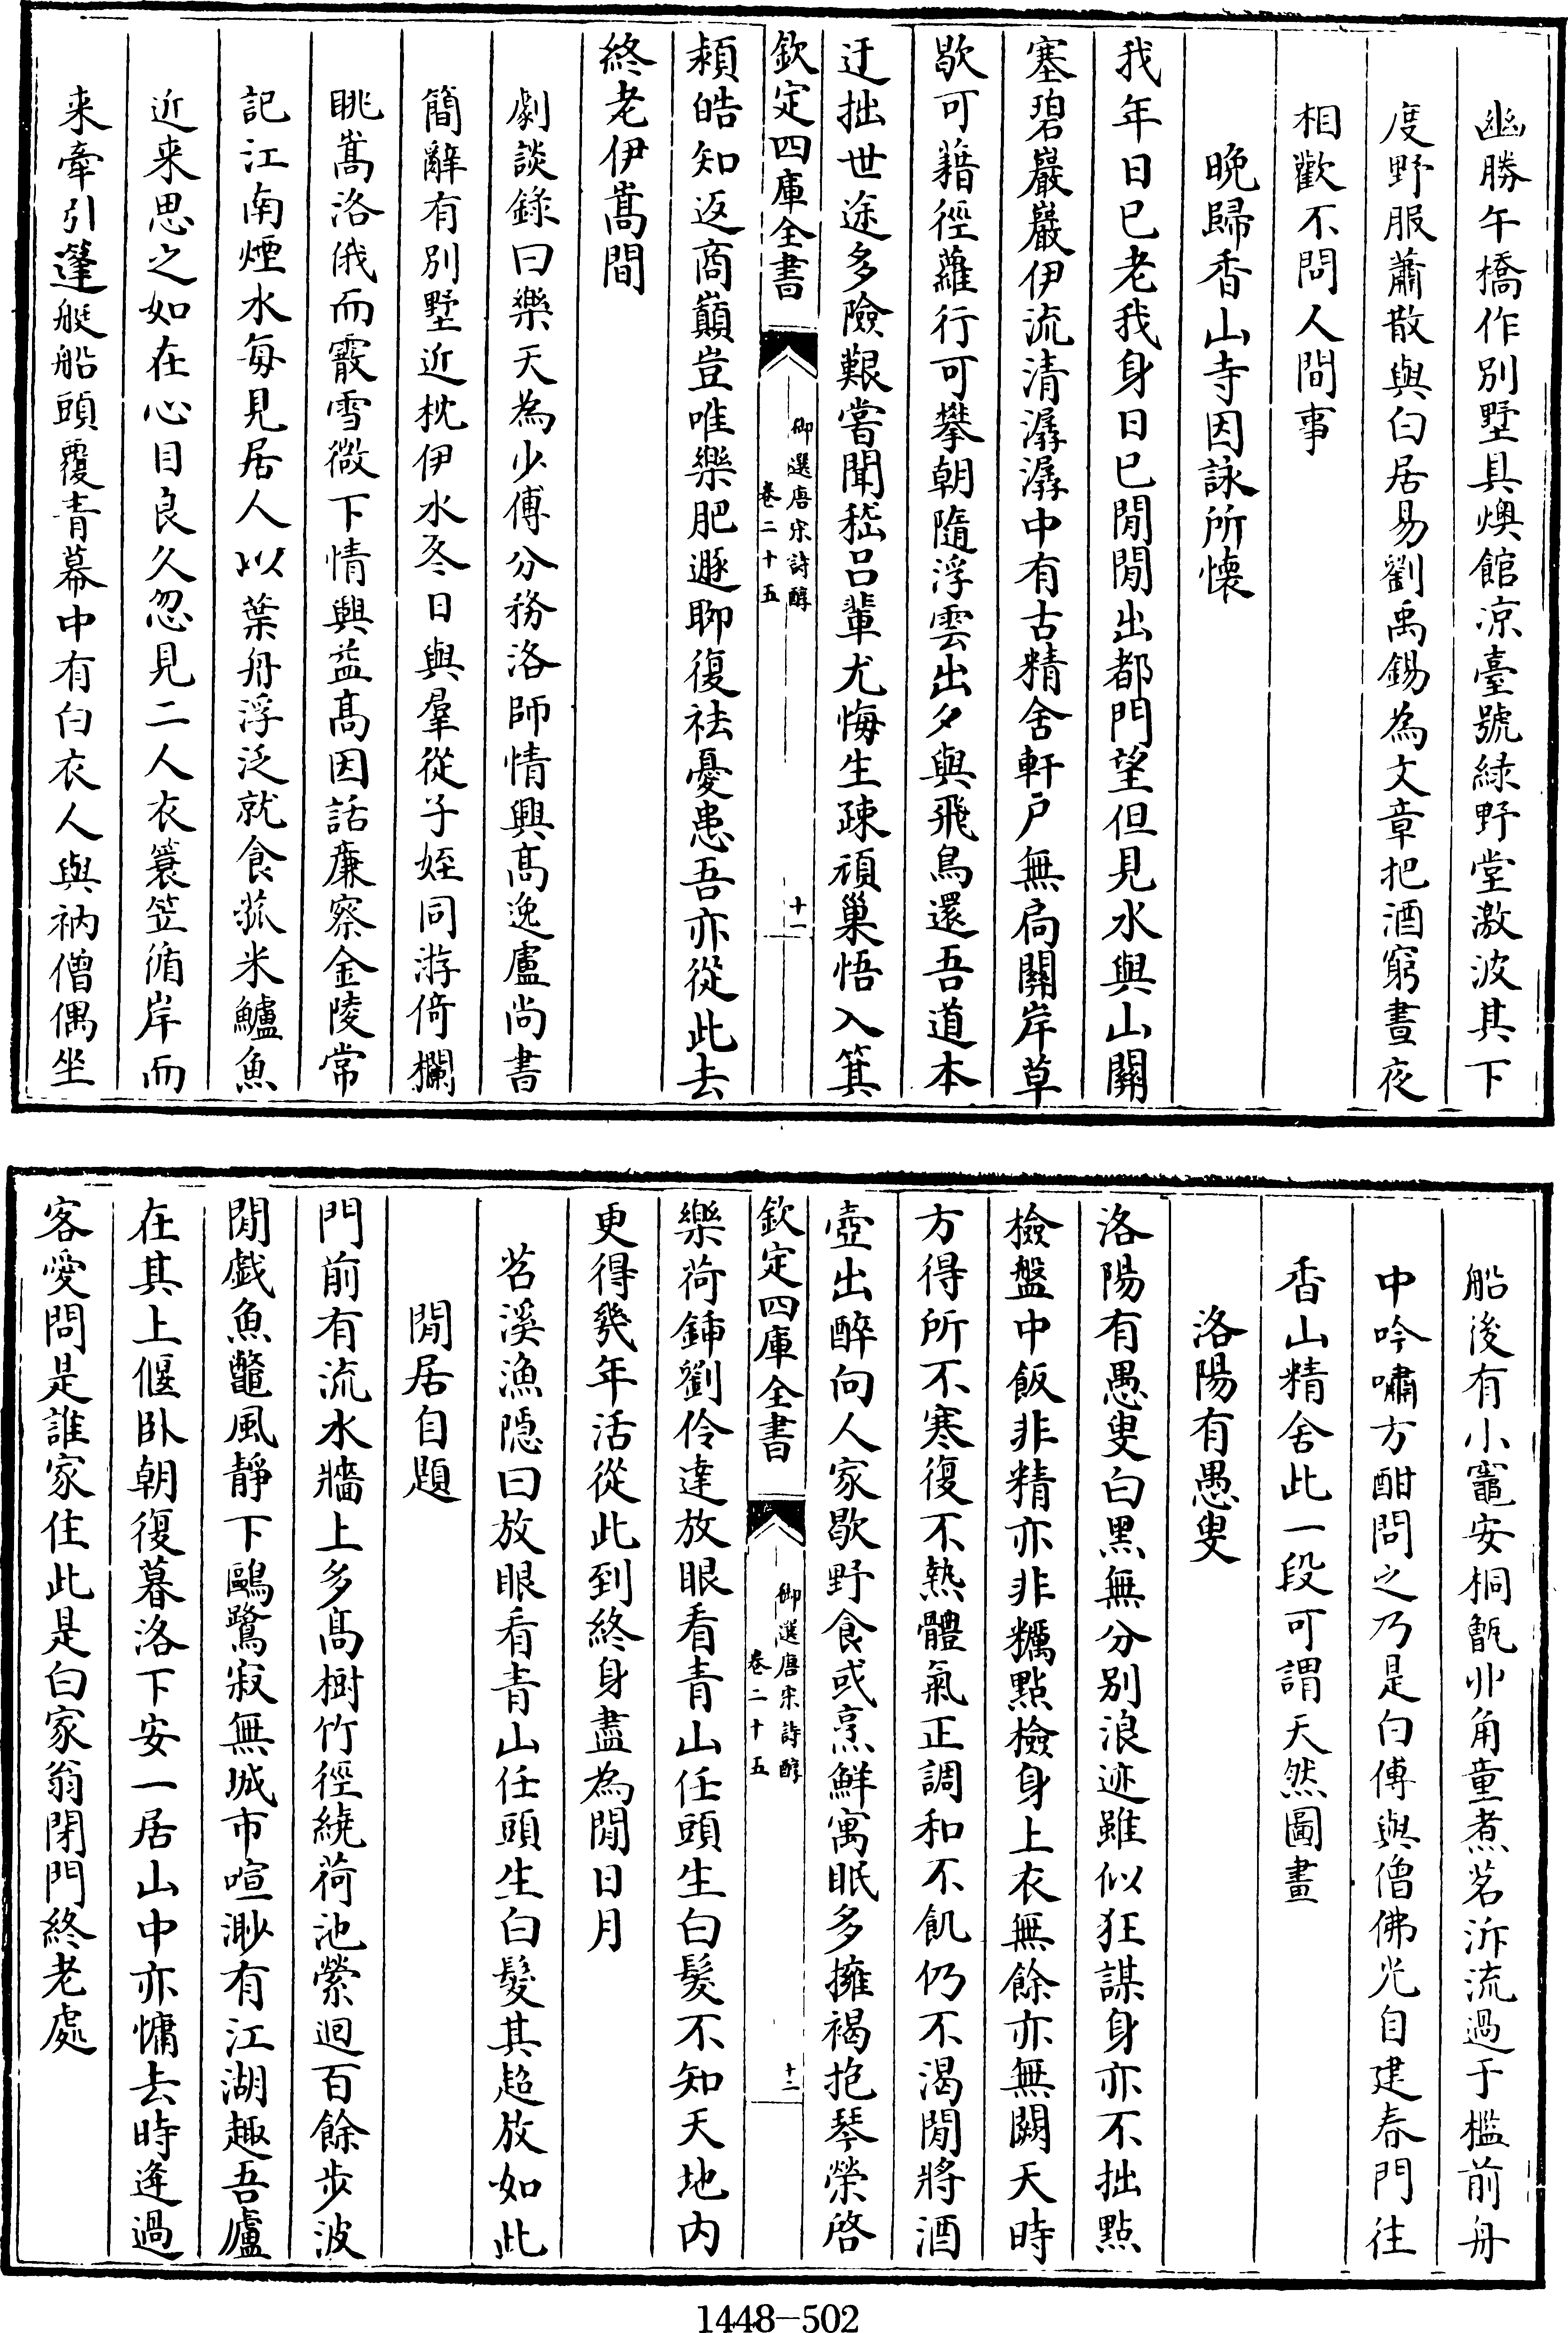 幽勝午橋作別墅具燠館凉臺號緑野堂激波其下
度野服蕭散與白居易劉禹錫為文章把酒窮晝夜
相歡不問人間事
晚歸香山寺因詠所懷
我年日已老我身日已閒閒出都門望但見水與山關
塞碧巖巖伊流清潺潺中有古精舍軒户無扃關岸草
歇可藉徑蘿行可攀朝隨浮雲出夕與飛鳥還吾道本
迂拙世途多險艱嘗聞嵇吕輩尤悔生疎頑巢悟入箕
欽定四庫全書
御選唐宋詩醇
卷二十五
十一
潁皓知返商巔豈唯樂肥遯聊復祛憂患吾亦從此去
終老伊嵩間
劇談錄曰樂天為少傅分務洛師情興髙逸盧尚書
簡辭有別墅近枕伊水冬日與羣從子姪同游倚欄
眺嵩洛俄而霰雪微下情興益髙因話廉察金陵常
記江南煙水每見居人以葉舟浮泛就食菰米鱸魚
近来思之如在心目良久忽見二人衣簑笠循岸而
来牽引篷艇船頭覆青幕中有白衣人與衲僧偶坐
船後有小竈安桐甑丱角童煮茗泝流過于檻前舟
中吟嘯方酣問之乃是白傅與僧佛光自建春門往
香山精舍此一段可謂天然圖畫
洛陽有愚叟
洛陽有愚叟白黑無分別浪迹雖似狂謀身亦不拙點
檢盤中飯非精亦非糲點檢身上衣無餘亦無闕天時
方得所不寒復不熱體氣正調和不飢仍不渴閒將酒
壺出醉向人家歇野食或烹鮮寓眠多擁褐抱琴榮啓
欽定四庫全書
御選唐宋詩醇
卷二十五
十二
樂荷鍤劉伶達放眼看青山任頭生白髮不知天地内
更得幾年活從此到終身盡為閒日月
苕溪漁隱曰放眼看青山任頭生白髮其超放如此
閒居自題
門前有流水牆上多髙樹竹徑繞荷池縈迴百餘步波
閒戲魚鼈風靜下鷗鷺寂無城市喧渺有江湖趣吾廬
在其上偃卧朝復暮洛下安一居山中亦慵去時逢過
客愛問是誰家住此是白家翁閉門終老處
1448-502